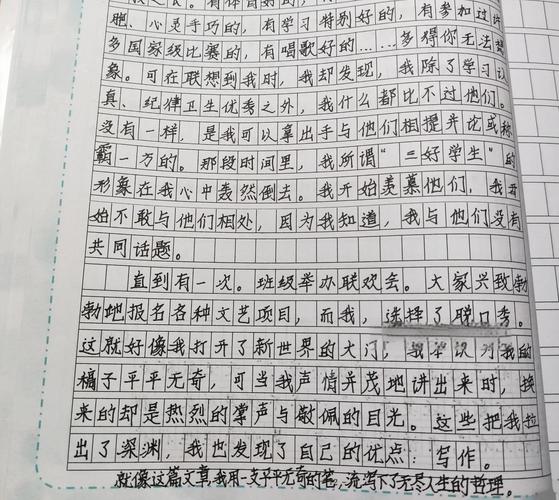 有体育好的，
胞、心灵手巧的，有学习特别好的，有参加过许
多国家级比赛的，有唱歌好的……多得你无法想
象。可在联想到我时，我却发现，我除了学习认
真、纪律卫生优秀之外，我什么都比不过他们。
没有一样，是我可以拿出手与他们相提并论或称
霸一方的。那段时间里，我所谓“三好学生”的
形象在我心中轰然倒去。我开始羡慕他们，我开
始不敢与他们相处，因为我知道，我与他们没有
共同话题。
直到有一次。班级举办联欢会。大家兴致勃
勃地报名各种文艺项目，而我，选择了脱口秀。
这就好像我打开了新世界的大门，我本以为我的
稿子平平无奇，可当我声情并茂地讲出来时，换
来的却是热烈的掌声与敬佩的目光。这些把我拉
出了深渊，我也发现了自己的优点：写作。
就像这篇文章，我用一支平平无奇的笔，流写下了无尽人生的哲理。